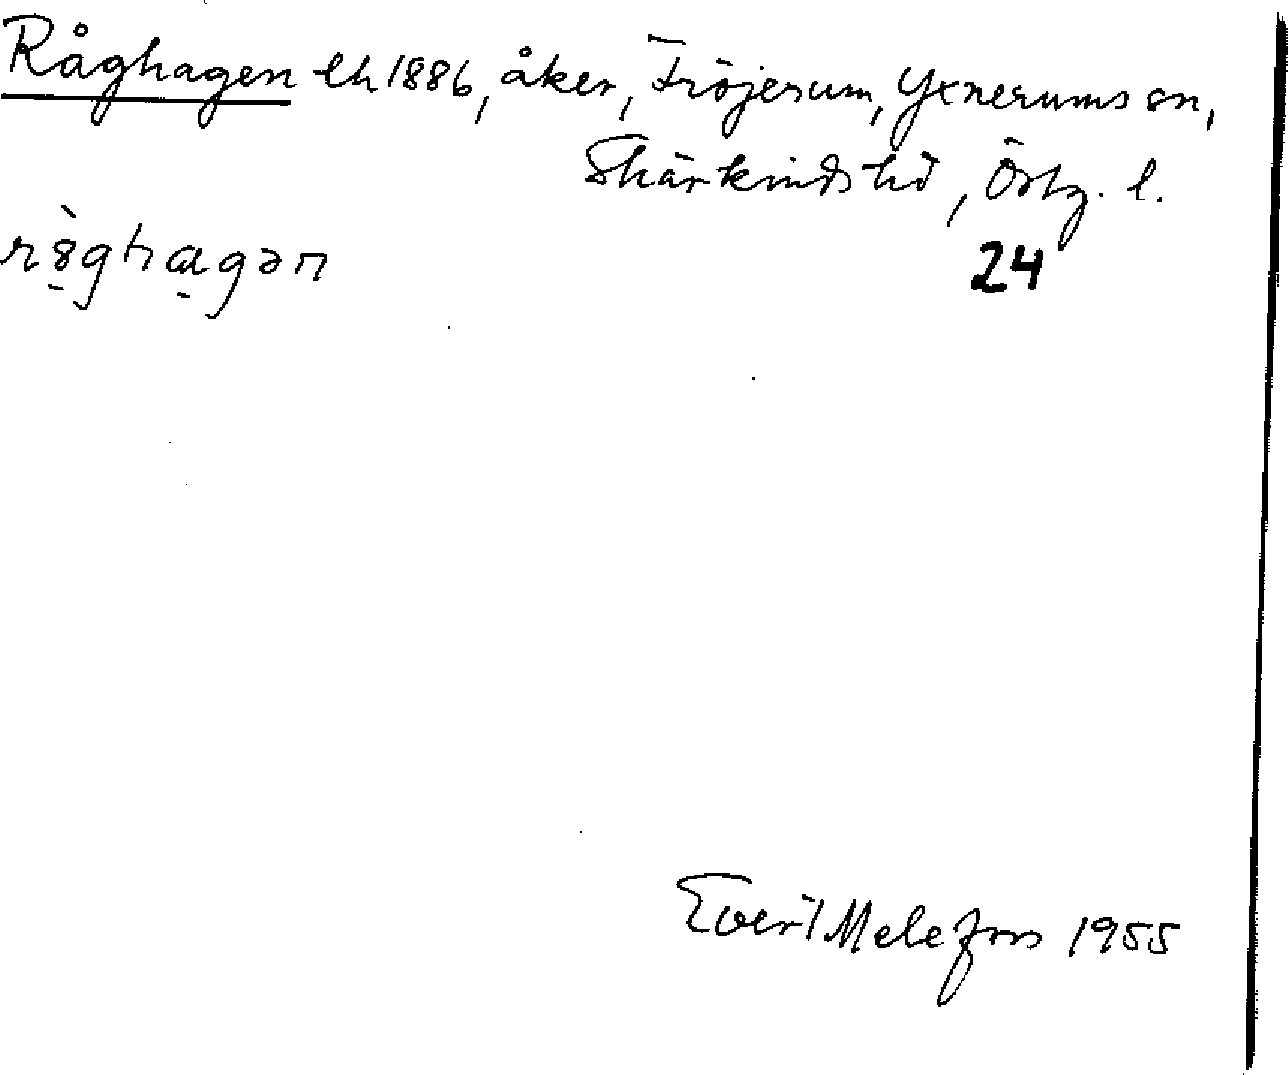 Råghagen lh 1886, åker, Fröjerum, Yxnerums sn,
Skärkinds hd, Östg. l.
24
rò̱gha̱gən
Evert Melefors 1955